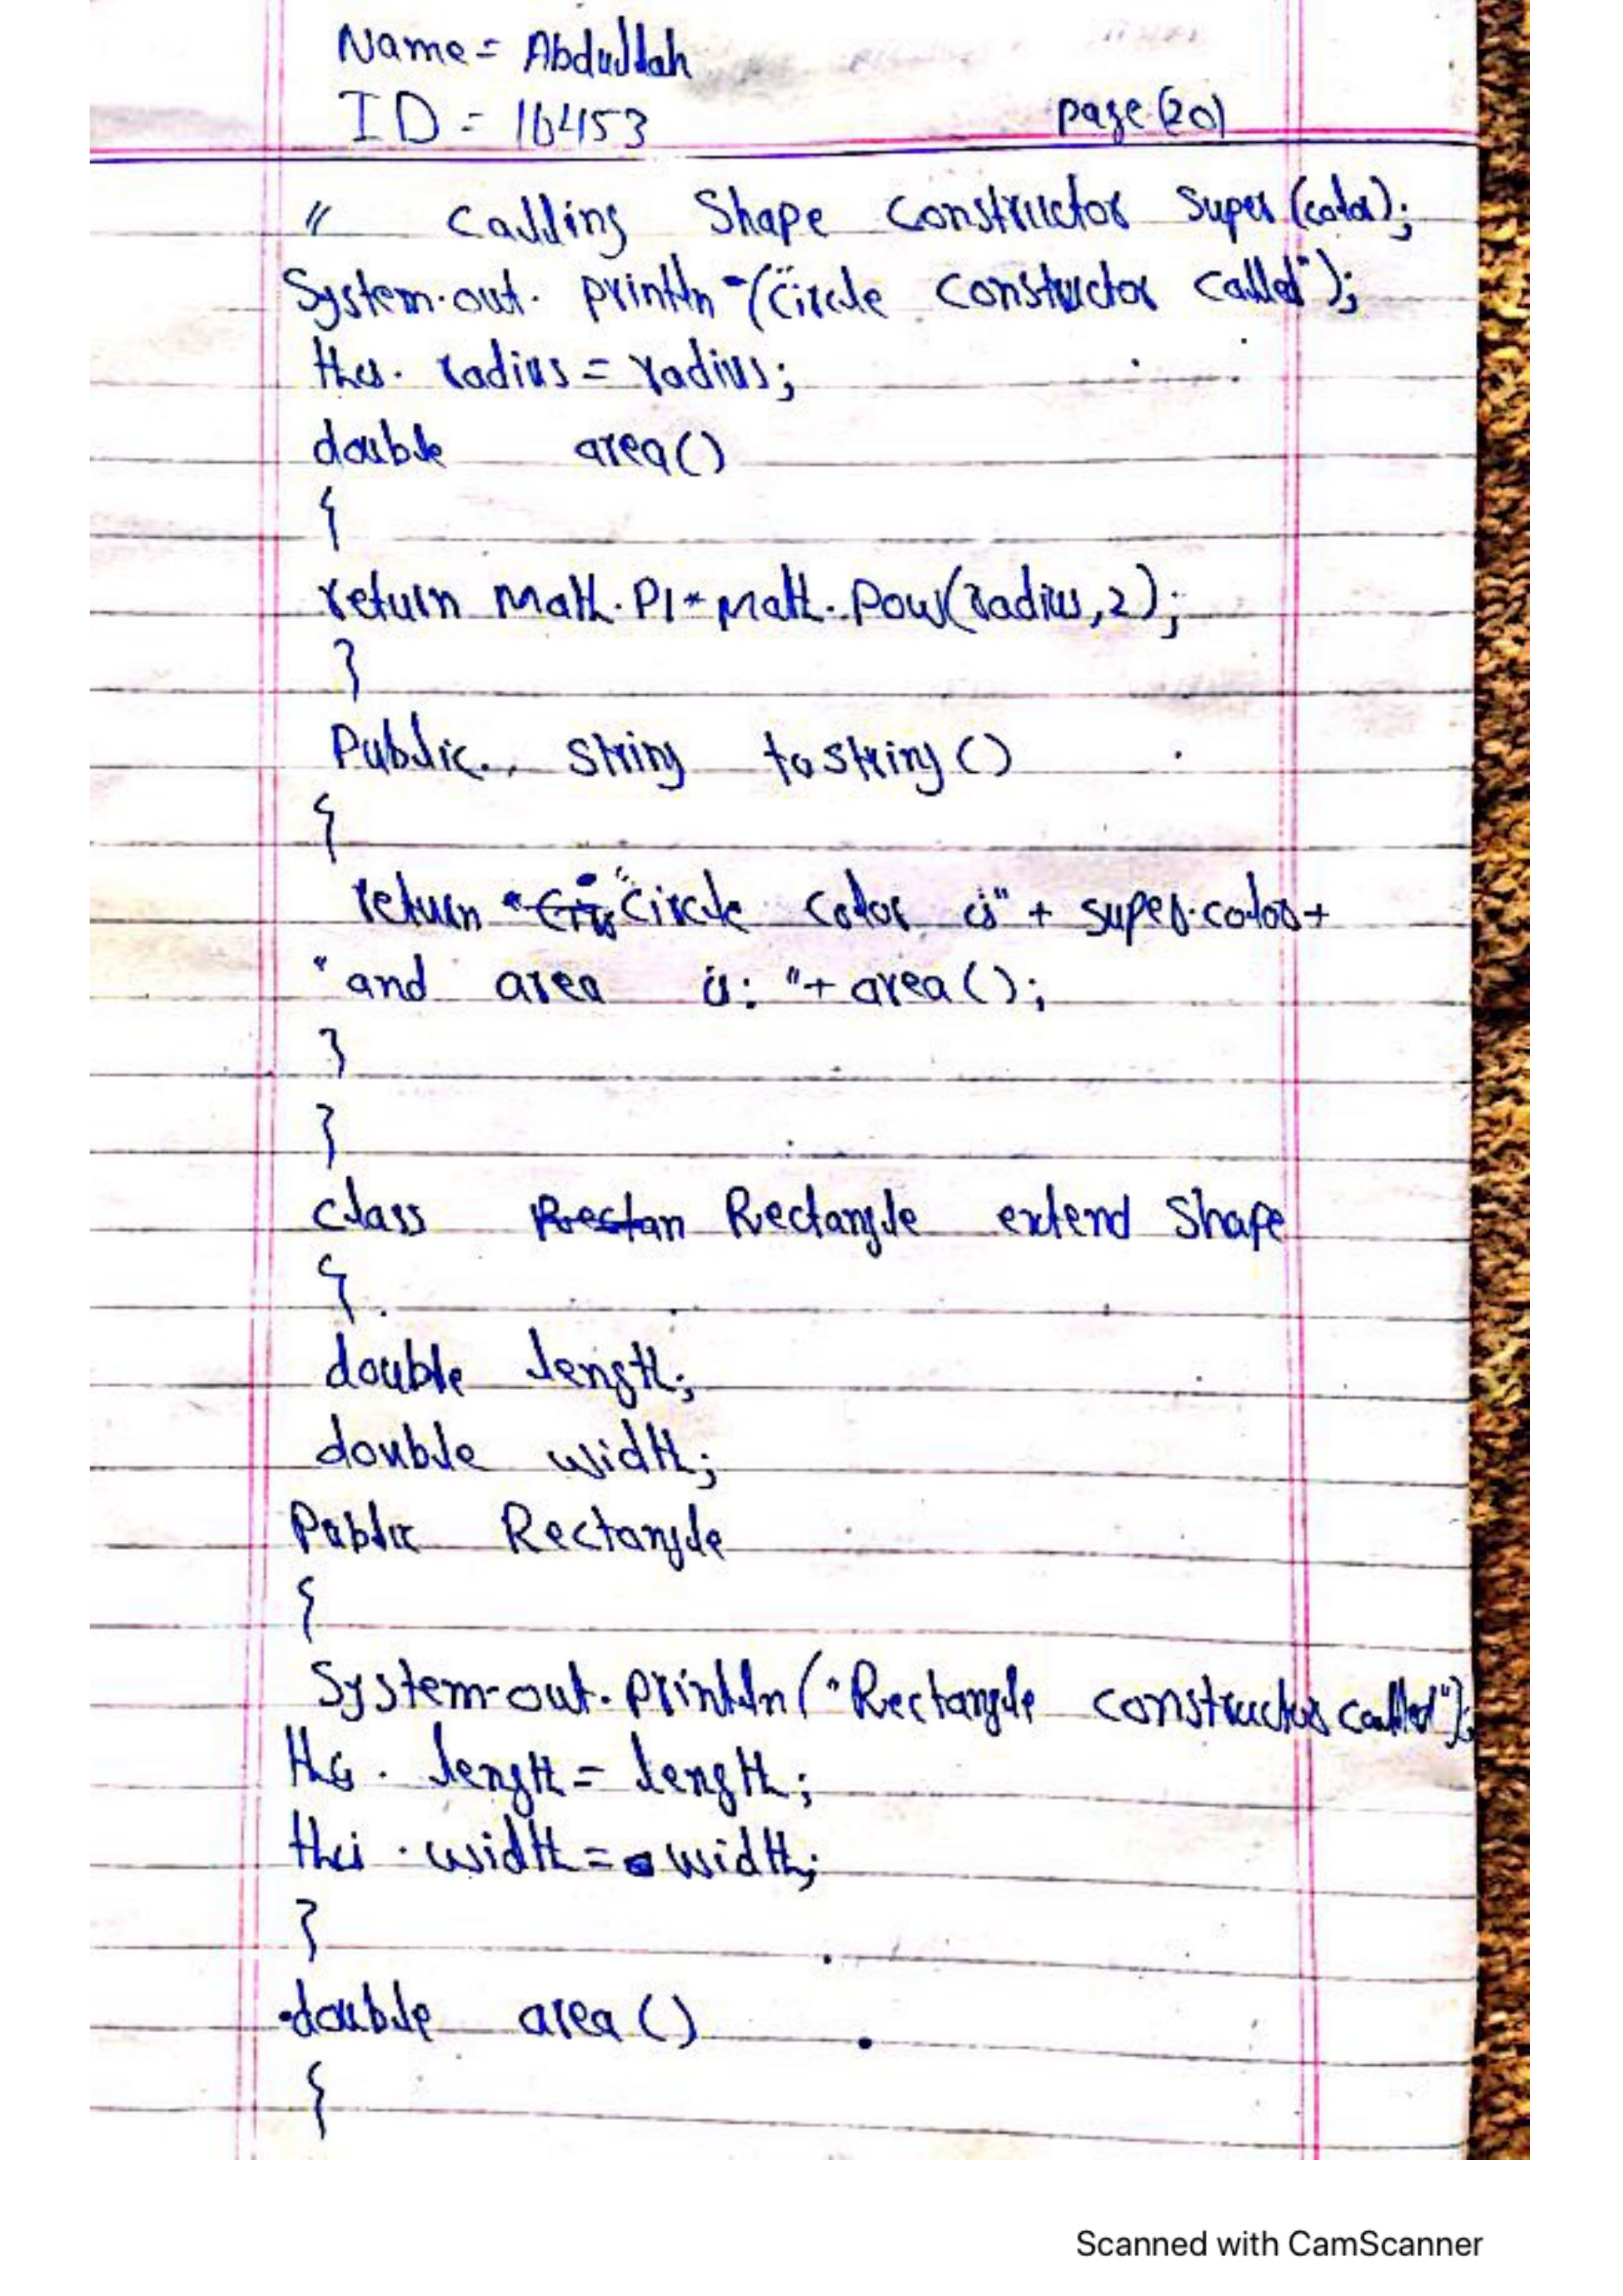 Name = Abdullah
ID = 16453 page (20)
// Calling Shape Constructor Super (color);
System.out. println ("Circle Constuctor Called");
this. radius = radius;
double area()
{
return Math.PI * Math. Pow(radius,2);
}
Public String toString ()
{
return " Cir "Circle Color is" + super.color +
"and area is: "+ area();
}
}
class Rectan Rectangle extend Shape
{
double length;
double width;
Public Rectangle
{
System.out.println("Rectangle constructor called");
this. length = length;
this. width = width;
}
double area ()
{
Scanned with CamScanner